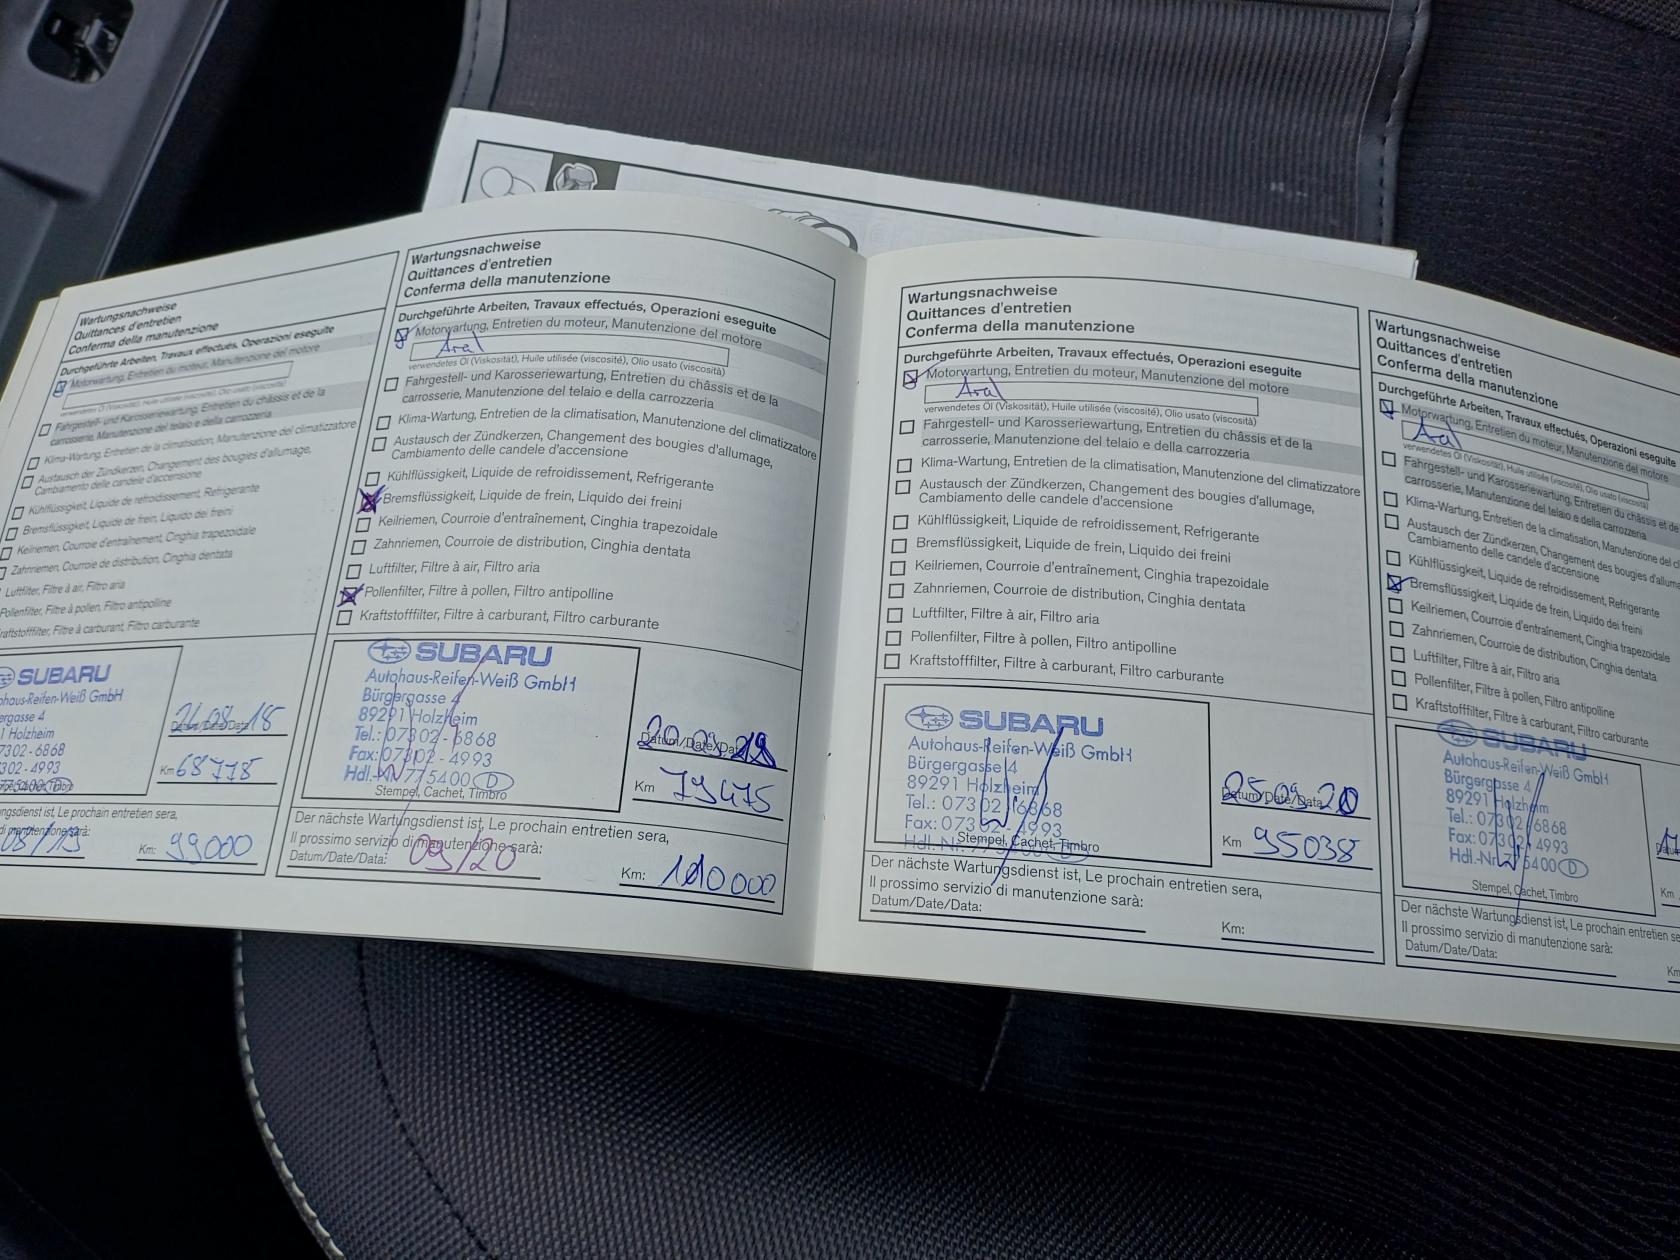 Wartungsnachweise
Quittances d'entretien
Conferma della manutenzione
Durchgeführte Arbeiten, Travaux effectués, Operazioni eseguite
Motorwartung, Entretien du moteur, Manutenzione del motore
verwendetes Öl (Viskosität), Huile utilisée (viscosité), Olio usato (viscosità)
Fahrgestell- und Karosseriewartung, Entretien du châssis et de la
carrosserie, Manutenzione del telaio e della carrozzeria
Klima-Wartung, Entretien de la climatisation, Manutenzione del climatizzatore
Austausch der Zündkerzen, Changement des bougies d'allumage,
Cambiamento delle candele d'accensione
Kühlflüssigkeit, Liquide de refroidissement, Refrigerante
Bremsflüssigkeit, Liquide de frein, Liquido dei freini
Keilriemen, Courroie d'entraînement, Cinghia trapezoidale
Zahnriemen, Courroie de distribution, Cinghia dentata
Luftfilter, Filtre à air, Filtro aria
Pollenfilter, Filtre à pollen, Filtro antipolline
Kraftstofffilter, Filtre à carburant, Filtro carburante
SUBARU
Autohaus-Reifen-Weiß GmbH
Bürgergasse 4
07302-6868
07302-4993
Datum/Date/Data
Km 68778
Wartungsdienst ist, Le prochain entretien sera,
Km: 99000
Wartungsnachweise
Quittances d'entretien
Conferma della manutenzione
Durchgeführte Arbeiten, Travaux effectués, Operazioni eseguite
Motorwartung, Entretien du moteur, Manutenzione del motore
Aral
verwendetes Öl (Viskosität), Huile utilisée (viscosité), Olio usato (viscosità)
Fahrgestell- und Karosseriewartung, Entretien du châssis et de la
carrosserie, Manutenzione del telaio e della carrozzeria
Klima-Wartung, Entretien de la climatisation, Manutenzione del climatizzatore
Austausch der Zündkerzen, Changement des bougies d'allumage,
Cambiamento delle candele d'accensione
Kühlflüssigkeit, Liquide de refroidissement, Refrigerante
Bremsflüssigkeit, Liquide de frein, Liquido dei freini
Keilriemen, Courroie d'entraînement, Cinghia trapezoidale
Zahnriemen, Courroie de distribution, Cinghia dentata
Luftfilter, Filtre à air, Filtro aria
Pollenfilter, Filtre à pollen, Filtro antipolline
Kraftstofffilter, Filtre à carburant, Filtro carburante
SUBARU
Autohaus-Reifen-Weiß GmbH
Bürgergasse 4
89291 Holzheim
Tel.: 07302-6868
Fax: 07302-4993
Hdl.-Nr. 775400 D
Stempel, Cachet, Timbro
Datum/Date/Data
Km 79475
Der nächste Wartungsdienst ist, Le prochain entretien sera,
Il prossimo servizio di manutenzione sarà:
Datum/Date/Data: 09/20
Km: 110000
Wartungsnachweise
Quittances d'entretien
Conferma della manutenzione
Durchgeführte Arbeiten, Travaux effectués, Operazioni eseguite
Motorwartung, Entretien du moteur, Manutenzione del motore
Aral
verwendetes Öl (Viskosität), Huile utilisée (viscosité), Olio usato (viscosità)
Fahrgestell- und Karosseriewartung, Entretien du châssis et de la
carrosserie, Manutenzione del telaio e della carrozzeria
Klima-Wartung, Entretien de la climatisation, Manutenzione del climatizzatore
Austausch der Zündkerzen, Changement des bougies d'allumage,
Cambiamento delle candele d'accensione
Kühlflüssigkeit, Liquide de refroidissement, Refrigerante
Bremsflüssigkeit, Liquide de frein, Liquido dei freini
Keilriemen, Courroie d'entraînement, Cinghia trapezoidale
Zahnriemen, Courroie de distribution, Cinghia dentata
Luftfilter, Filtre à air, Filtro aria
Pollenfilter, Filtre à pollen, Filtro antipolline
Kraftstofffilter, Filtre à carburant, Filtro carburante
SUBARU
Autohaus-Reifen-Weiß GmbH
Bürgergasse 4
89291 Holzheim
Tel.: 07302-6868
Fax: 07302-4993
Hdl.-Nr. 775400 D
Stempel, Cachet, Timbro
25.09.20
Datum/Date/Data
Km 95038
Der nächste Wartungsdienst ist, Le prochain entretien sera,
Il prossimo servizio di manutenzione sarà:
Datum/Date/Data:
Km:
Wartungsnachweise
Quittances d'entretien
Conferma della manutenzione
Durchgeführte Arbeiten, Travaux effectués, Operazioni eseguite
Motorwartung, Entretien du moteur, Manutenzione del motore
verwendetes Öl (Viskosität), Huile utilisée (viscosité), Olio usato (viscosità)
Fahrgestell- und Karosseriewartung, Entretien du châssis et de la
carrosserie, Manutenzione del telaio e della carrozzeria
Klima-Wartung, Entretien de la climatisation, Manutenzione del
Austausch der Zündkerzen, Changement des bougies
Cambiamento delle candele d'accensione
Kühlflüssigkeit, Liquide de refroidissement, Refrigerante
Bremsflüssigkeit, Liquide de frein, Liquido dei freini
Keilriemen, Courroie d'entraînement, Cinghia trapezoidale
Zahnriemen, Courroie de distribution, Cinghia dentata
Luftfilter, Filtre à air, Filtro aria
Pollenfilter, Filtre à pollen, Filtro antipolline
Kraftstofffilter, Filtre à carburant, Filtro carburante
SUBARU
Autohaus-Reifen-Weiß GmbH
Bürgergasse 4
89291 Holzheim
Tel.: 07302-6868
Fax: 07302-4993
Hdl.-Nr. 775400 D
Stempel, Cachet, Timbro
Km
Der nächste Wartungsdienst ist, Le prochain entretien
Il prossimo servizio di manutenzione sarà:
Datum/Date/Data:
Km